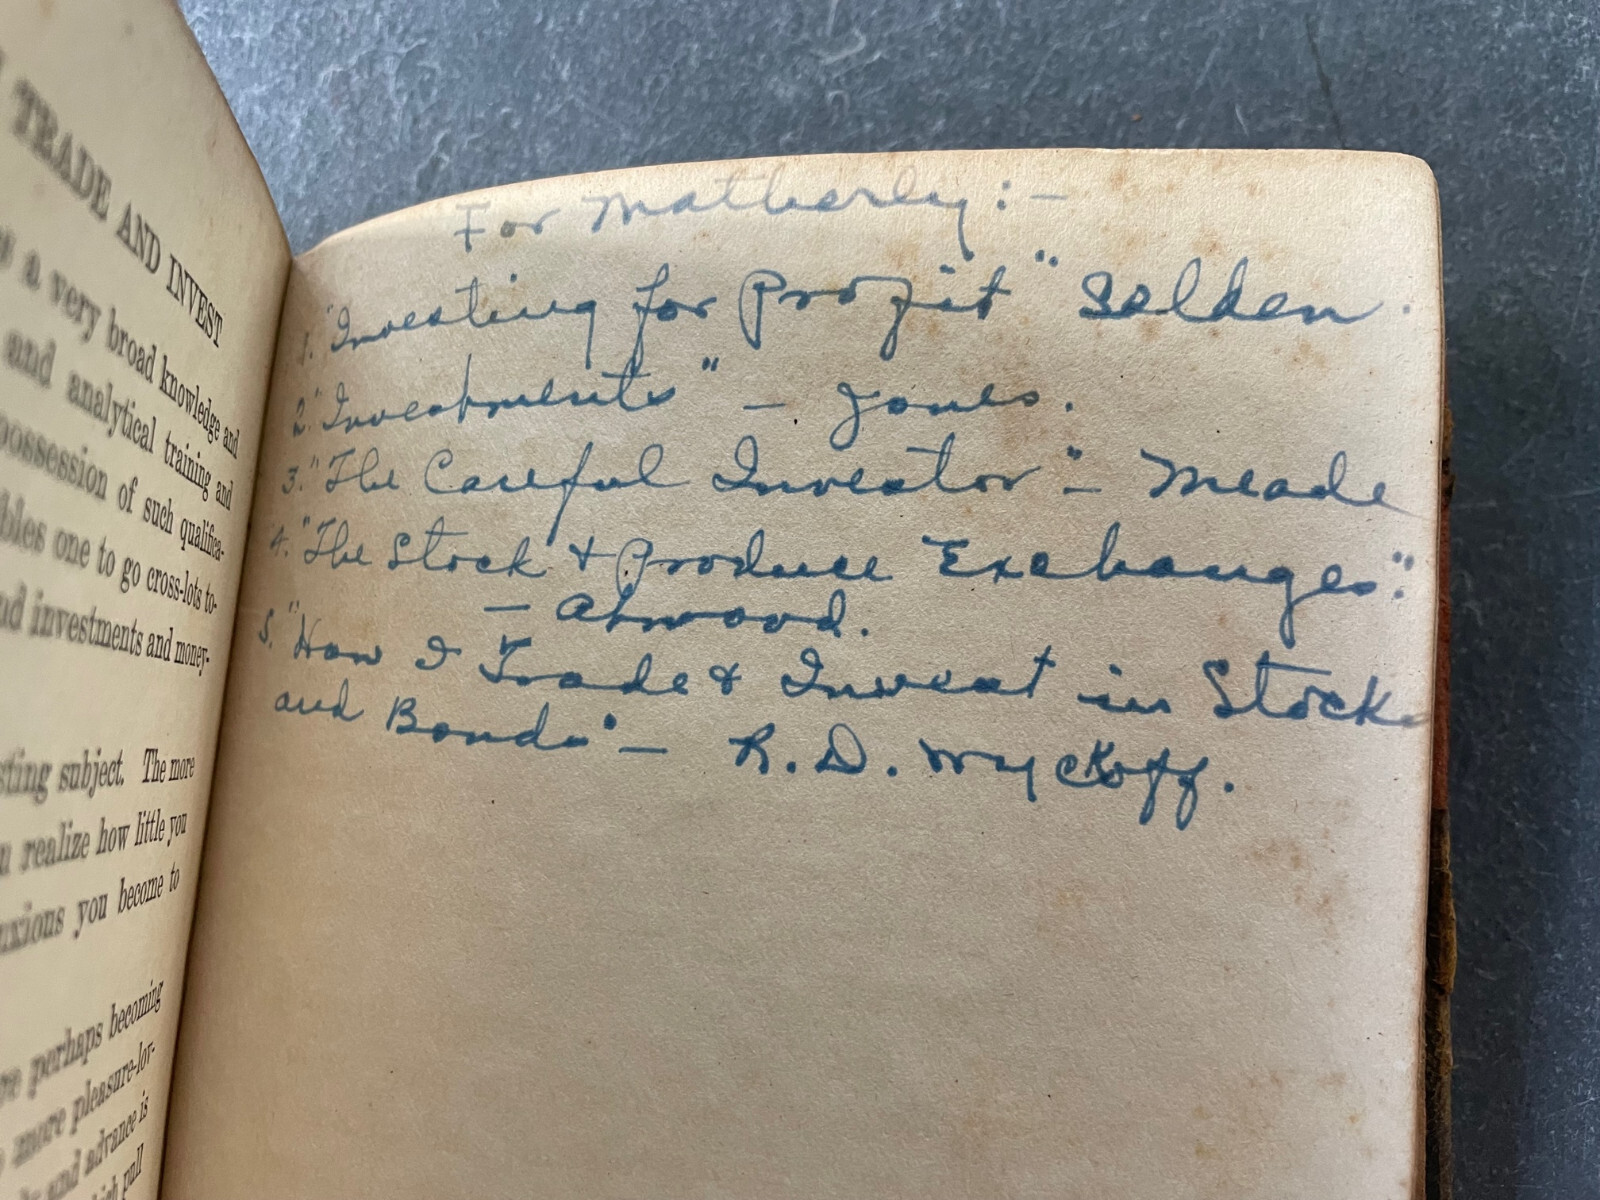 TRADE AND INVEST
a very broad knowledge and
and analytical training and
possession of such qualifica-
one to go cross-lots to-
investments and money-
subject. The more
realize how little you
you become to
perhaps becoming
more pleasure-lov-
and advance is
pull
For Matherly:-
1. "Investing for Profit" Selden.
2. "Investments" - Jones.
3. "The Careful Investor" - Meade
4. "The Stock & Produce Exchanges".
- Atwood.
5. "How I Trade & Invest in Stocks
and Bonds" - R. D. Wyckoff.